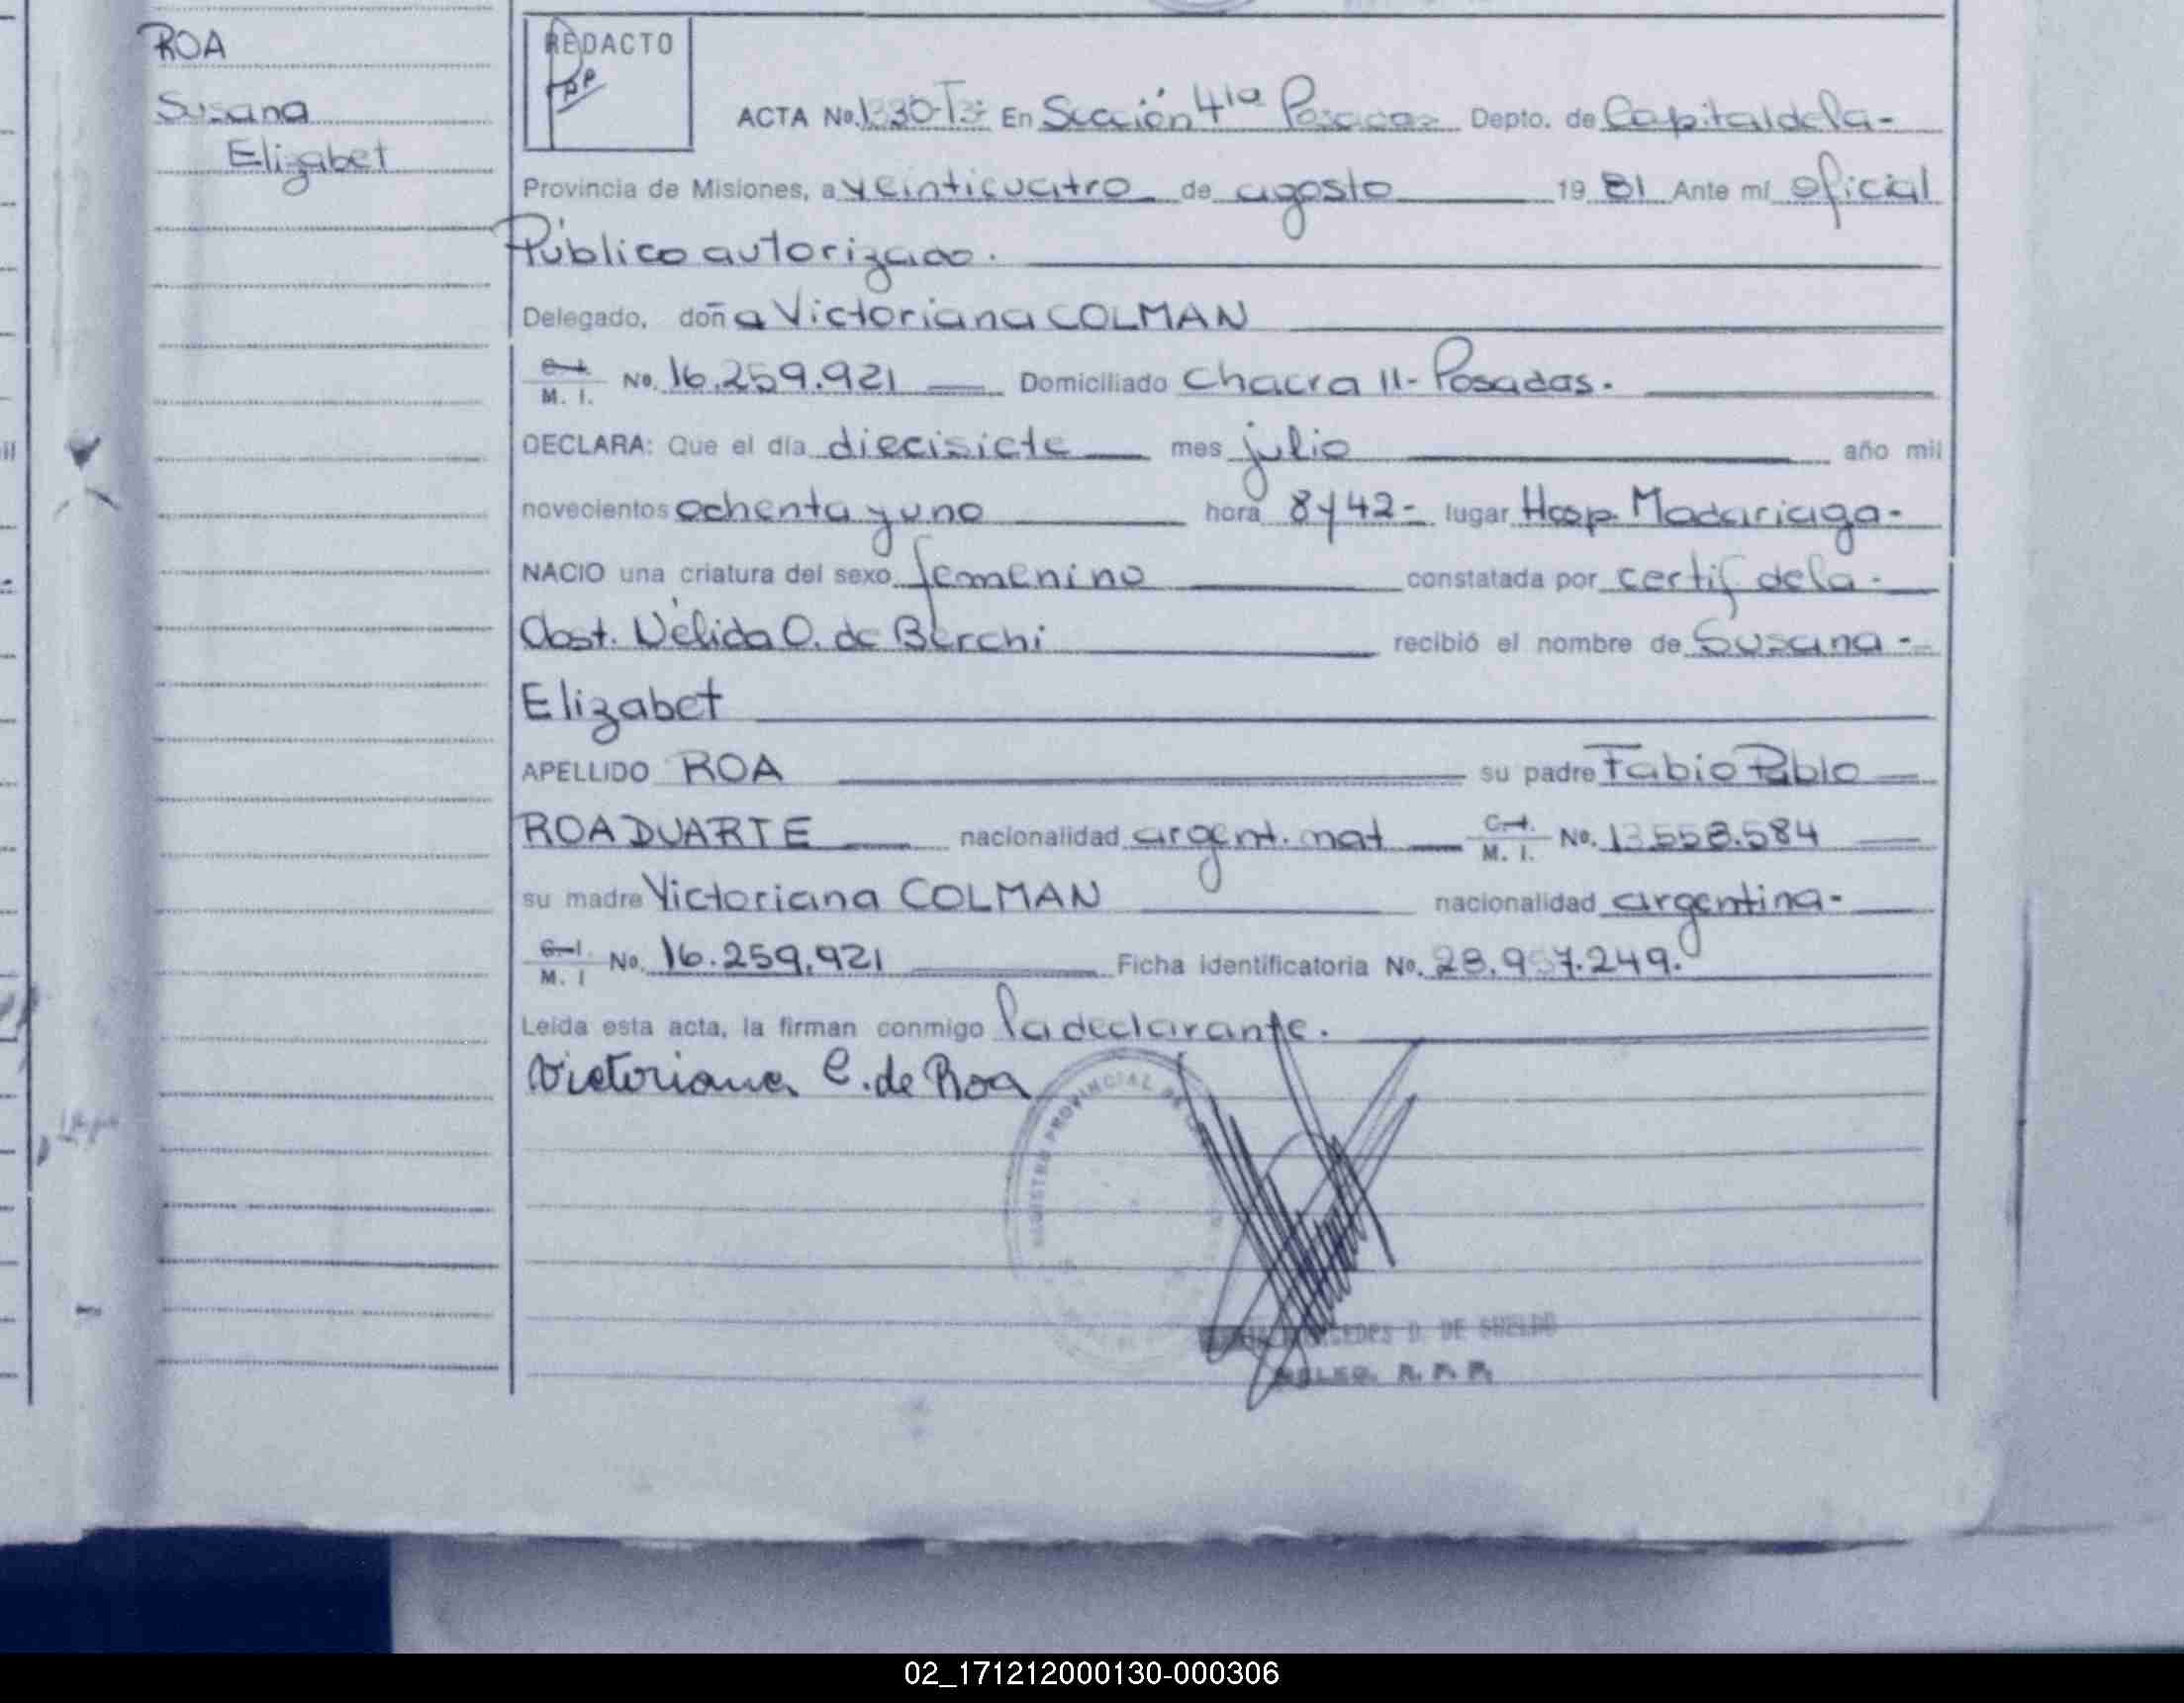 ROA
Susana
Elizabet
REDACTO
ACTA No. 1330-T3: En Sección 4ta Posadas Depto. de Capital de la-
Provincia de Misiones, a veinticuatro de agosto 1981 Ante mí oficial
Público autorizado.
Delegado, doña Victoriana COLMAN
C.I. M. I. No. 16.259.921 Domiciliado Chacra 11- Posadas.
DECLARA: Que el día diecisiete mes julio año mil
novecientos ochenta y uno hora 8y42- lugar Hosp. Madariaga-
NACIO una criatura del sexo femenino constatada por certif de la-
Obst. Nélida O. de Berchi recibió el nombre de Susana-
Elizabet
APELLIDO ROA su padre Fabio Pablo
ROA DUARTE nacionalidad argent. nat C.I. M. I. No. 13.558.584
su madre Victoriana COLMAN nacionalidad argentina-
C.I. M. I No. 16.259.921 Ficha identificatoria No. 28.957.249.
Leída esta acta, la firman conmigo la declarante.
Victoriana C. de Roa
REGISTRO PROVINCIAL DE
D. DE
R. P. P.
02_171212000130-000306